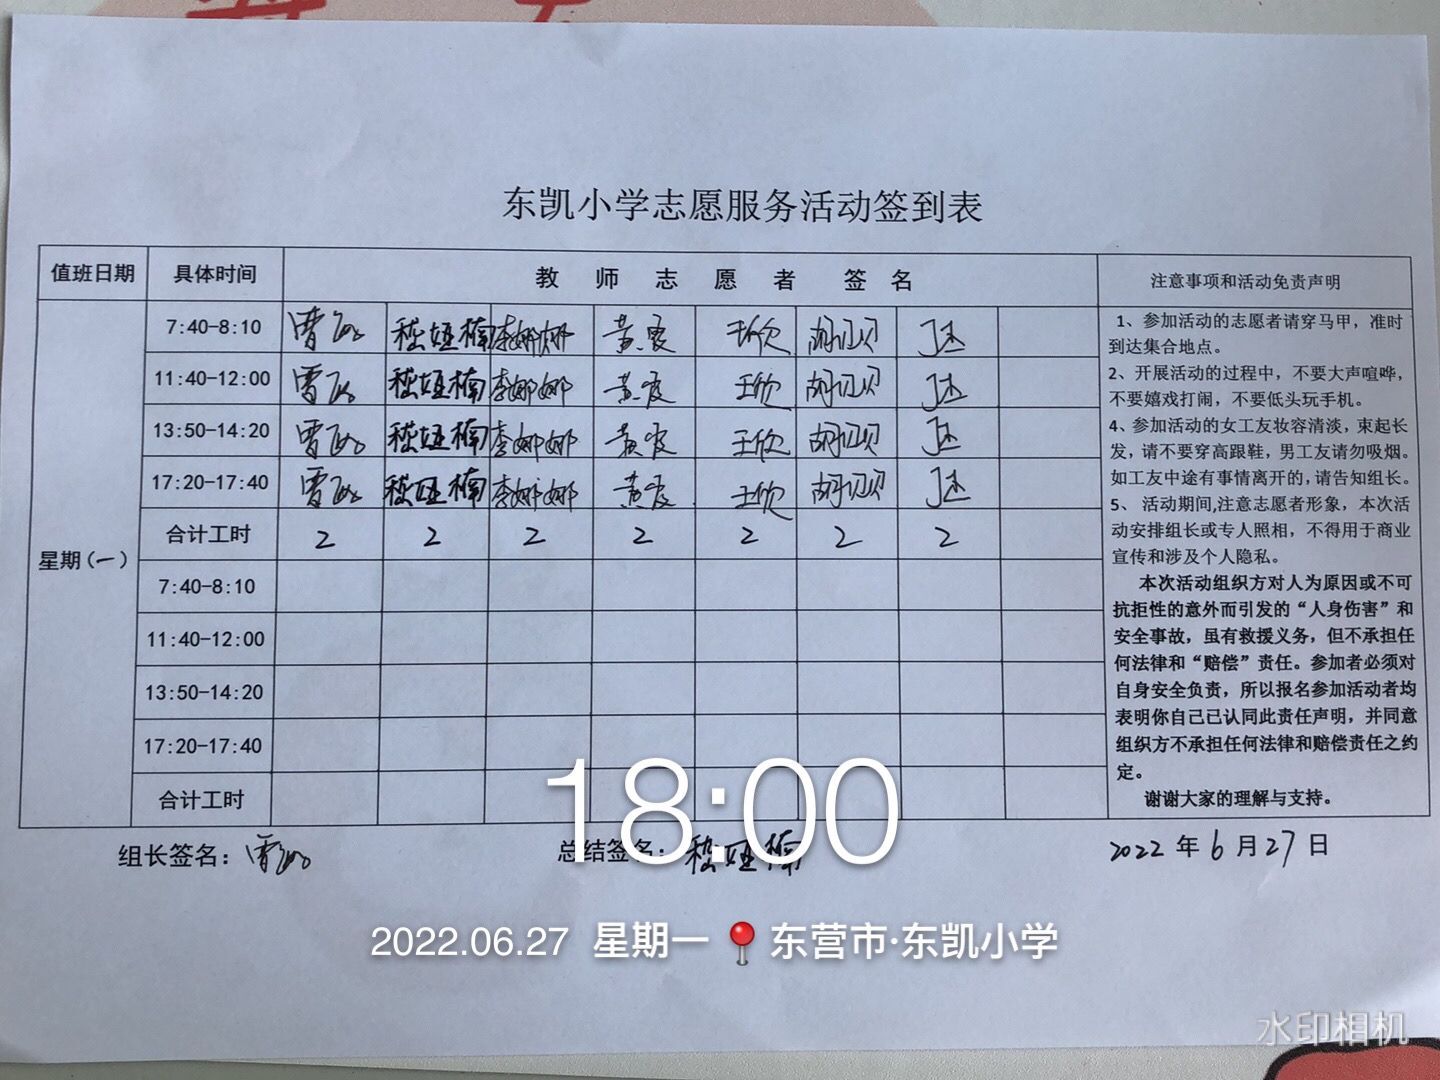 东凯小学志愿服务活动签到表
值班日期 具体时间 教师志愿者签名 注意事项和活动免责声明
星期(一)
7:40-8:10 李娜娜 王欣 胡贝贝
11:40-12:00 李娜娜 王欣 胡贝贝
13:50-14:20 李娜娜 王欣 胡贝贝
17:20-17:40 李娜娜 王欣 胡贝贝
合计工时 2 2 2 2 2 2 2
7:40-8:10
11:40-12:00
13:50-14:20
17:20-17:40
合计工时
1、参加活动的志愿者请穿马甲，准时
到达集合地点。
2、开展活动的过程中，不要大声喧哗，
不要嬉戏打闹，不要低头玩手机。
4、参加活动的女工友妆容清淡，束起长
发，请不要穿高跟鞋，男工友请勿吸烟。
如工友中途有事情离开的，请告知组长。
5、 活动期间,注意志愿者形象，本次活
动安排组长或专人照相，不得用于商业
宣传和涉及个人隐私。
本次活动组织方对人为原因或不可
抗拒性的意外而引发的“人身伤害”和
安全事故，虽有救援义务，但不承担任
何法律和“赔偿”责任。参加者必须对
自身安全负责，所以报名参加活动者均
表明你自己已认同此责任声明，并同意
组织方不承担任何法律和赔偿责任之约
定。
谢谢大家的理解与支持。
组长签名： 总结签名： 2022 年 6 月 27 日
18:00
2022.06.27 星期一 东营市·东凯小学
水印相机